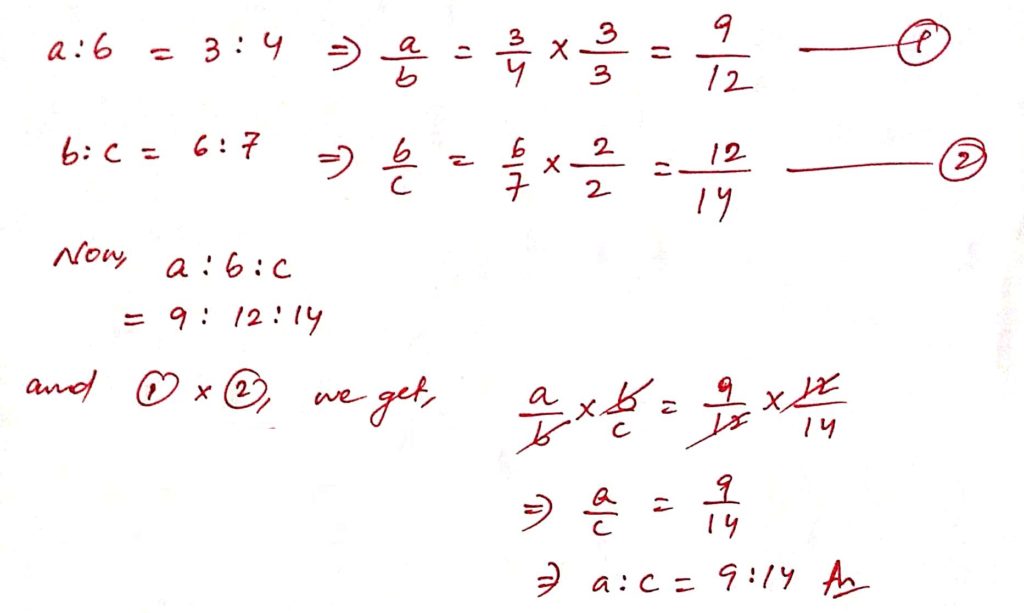 a:b = 3:4 ⇒ a/b = 3/4 × 3/3 = 9/12 —— ①
b:c = 6:7 ⇒ b/c = 6/7 × 2/2 = 12/14 —— ②
Now, a:b:c
= 9:12:14
and ① × ②, we get, a/b × b/c = 9/12 × 12/14
⇒ a/c = 9/14
⇒ a:c = 9:14 An